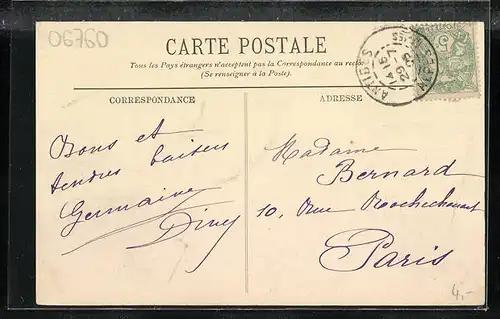 06760
CARTE POSTALE
Tous les Pays étrangers n'acceptent pas la Correspondance au recto
(Se renseigner à la Poste.)
ANTIBES
CORRESPONDANCE
ADRESSE
Bons et
tendres baisers
Germaine
Madame
Bernard
10, Rue Rochechouart
Paris
4,-